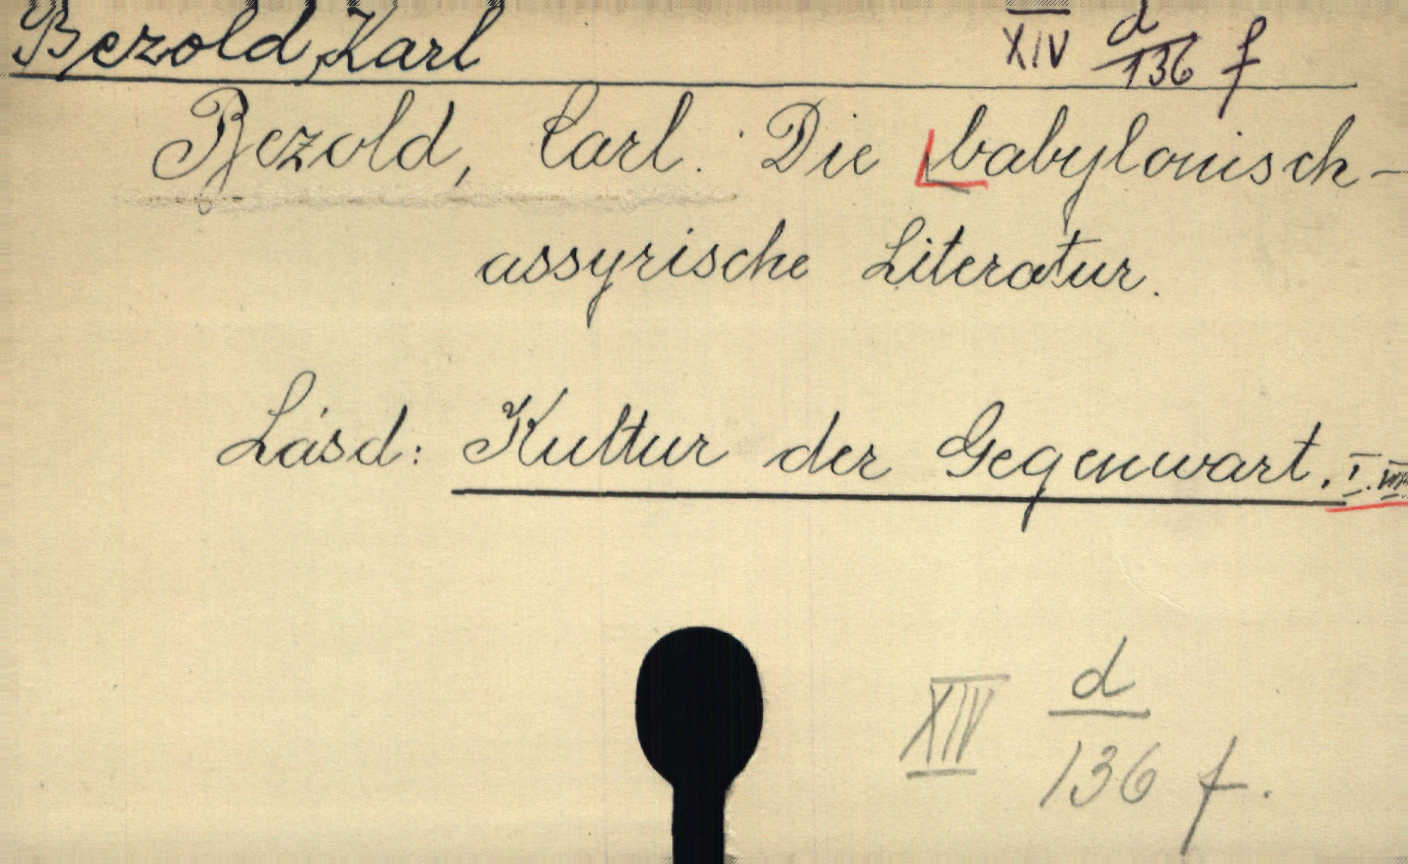 Bezold, Karl XIV d/136 f
Bezold, Carl. Die babylonisch-
assyrische Literatur.
Lásd: Kultur der Gegenwart. I.
XIV d/136 f.